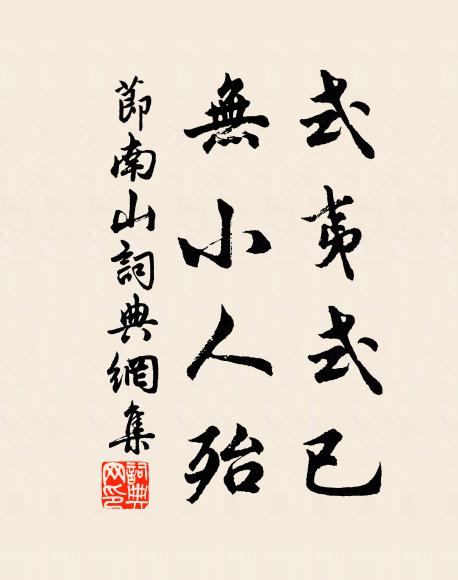 式夷式已
無小人殆
節南山詞典網集
詞典
网印